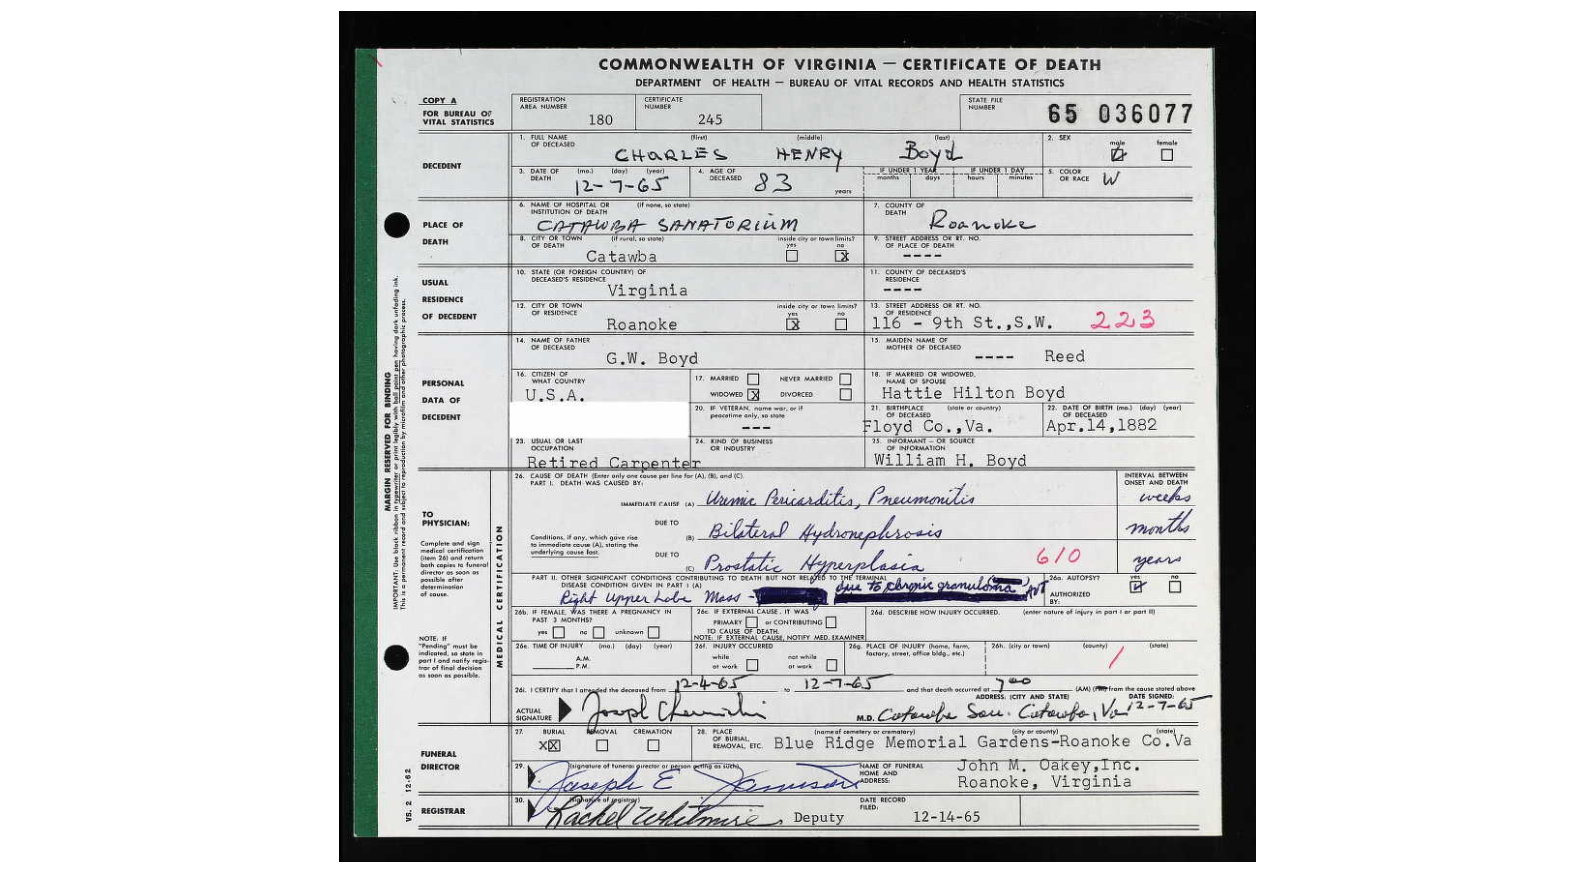 COMMONWEALTH OF VIRGINIA — CERTIFICATE OF DEATH
DEPARTMENT OF HEALTH — BUREAU OF VITAL RECORDS AND HEALTH STATISTICS
COPY A
FOR BUREAU OF
VITAL STATISTICS
REGISTRATION
AREA NUMBER
180
CERTIFICATE
NUMBER
245
STATE FILE
NUMBER
65 036077
DECEDENT
1. FULL NAME OF DECEASED (first) (middle) (last)
CHARLES HENRY Boyd
2. SEX
male female
3. DATE OF DEATH (mo.) (day) (year)
12-7-65
4. AGE OF DECEASED
83 years
IF UNDER 1 YEAR months days
IF UNDER 1 DAY hours minutes
5. COLOR OR RACE W
PLACE OF
DEATH
6. NAME OF HOSPITAL OR INSTITUTION OF DEATH (if none, so state)
CATAWBA SANATORIUM
7. COUNTY OF DEATH
Roanoke
8. CITY OR TOWN OF DEATH (if rural, so state)
Catawba
inside city or town limits?
yes no X
9. STREET ADDRESS OR RT. NO. OF PLACE OF DEATH
----
USUAL
RESIDENCE
OF DECEDENT
10. STATE (OR FOREIGN COUNTRY) OF DECEASED'S RESIDENCE
Virginia
11. COUNTY OF DECEASED'S RESIDENCE
----
12. CITY OR TOWN OF RESIDENCE
Roanoke
inside city or town limits?
yes X no
13. STREET ADDRESS OR RT. NO. OF RESIDENCE
116 - 9th St.,S.W. 223
PERSONAL
DATA OF
DECEDENT
14. NAME OF FATHER OF DECEASED
G.W. Boyd
15. MAIDEN NAME OF MOTHER OF DECEASED
---- Reed
16. CITIZEN OF WHAT COUNTRY
U.S.A.
17. MARRIED NEVER MARRIED
WIDOWED X DIVORCED
18. IF MARRIED OR WIDOWED, NAME OF SPOUSE
Hattie Hilton Boyd
20. IF VETERAN, name war, or if peacetime only, so state
---
21. BIRTHPLACE OF DECEASED (state or country)
Floyd Co.,Va.
22. DATE OF BIRTH OF DECEASED (mo.) (day) (year)
Apr.14,1882
23. USUAL OR LAST OCCUPATION
Retired Carpenter
24. KIND OF BUSINESS OR INDUSTRY
25. INFORMANT - OR SOURCE OF INFORMATION
William H. Boyd
TO
PHYSICIAN:
Complete and sign
medical certification
(item 26) and return
both copies to funeral
director as soon as
possible after
determination
of cause.
NOTE: IF
"Pending" must be
indicated, so state in
part I and notify regis-
trar of final decision
as soon as possible.
MEDICAL CERTIFICATION
26. CAUSE OF DEATH (Enter only one cause per line for (A), (B), and (C).
PART I. DEATH WAS CAUSED BY:
INTERVAL BETWEEN
ONSET AND DEATH
IMMEDIATE CAUSE (A) Uremic Pericarditis, Pneumonitis weeks
Conditions, if any, which gave rise
to immediate cause (A), stating the
underlying cause last.
DUE TO (B) Bilateral Hydronephrosis months
DUE TO (C) Prostatic Hyperplasia 610 years
PART II. OTHER SIGNIFICANT CONDITIONS CONTRIBUTING TO DEATH BUT NOT RELATED TO THE TERMINAL
DISEASE CONDITION GIVEN IN PART I (A)
Right Upper Lobe Mass - due to chronic granuloma
26a. AUTOPSY? yes no
AUTHORIZED
BY:
26b. IF FEMALE, WAS THERE A PREGNANCY IN
PAST 3 MONTHS?
yes no unknown
26c. IF EXTERNAL CAUSE, IT WAS
PRIMARY or CONTRIBUTING
TO CAUSE OF DEATH.
NOTE: IF EXTERNAL CAUSE, NOTIFY MED. EXAMINER
26d. DESCRIBE HOW INJURY OCCURRED. (enter nature of injury in part I or part II)
26e. TIME OF INJURY (mo.) (day) (year)
A.M.
P.M.
26f. INJURY OCCURRED
while at work not while at work
26g. PLACE OF INJURY (home, farm,
factory, street, office bldg., etc.)
26h. (city or town) (county) (state)
26i. I CERTIFY that I attended the deceased from 12-4-65 to 12-7-65 and that death occurred at 7 00 (AM) from the cause stated above
ADDRESS: (CITY AND STATE) DATE SIGNED:
ACTUAL
SIGNATURE Joseph M.D. Catawba San. Catawba, Va 12-7-65
FUNERAL
DIRECTOR
27. BURIAL REMOVAL CREMATION
XX
28. PLACE OF BURIAL, REMOVAL, ETC. (name of cemetery or crematory) (city or county) (state)
Blue Ridge Memorial Gardens-Roanoke Co.Va
29. (signature of funeral director or person acting as such)
Joseph E Jamison
NAME OF FUNERAL
HOME AND
ADDRESS:
John M. Oakey,Inc.
Roanoke, Virginia
REGISTRAR
30. (signature of registrar)
Rachel Whitmire Deputy
DATE RECORD
FILED:
12-14-65
MARGIN RESERVED FOR BINDING
IMPORTANT: Use black ribbon in typewriter or print legibly with ball point pen having dark unfading ink.
This is a permanent record and subject to reproduction by microfilm and other photographic process.
VS. 2 12-62